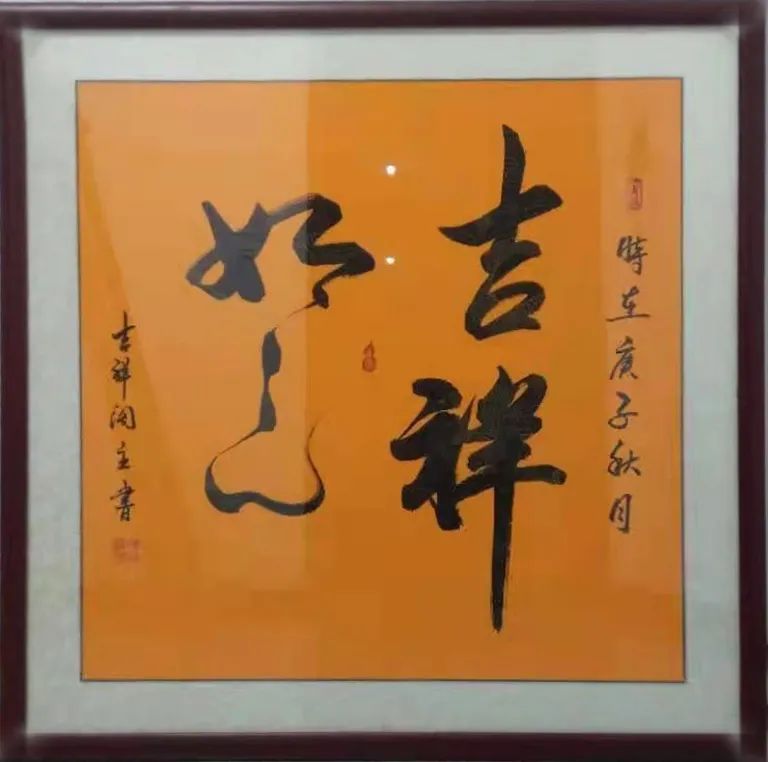 時在庚子秋月
吉祥
如意
吉祥阁主書